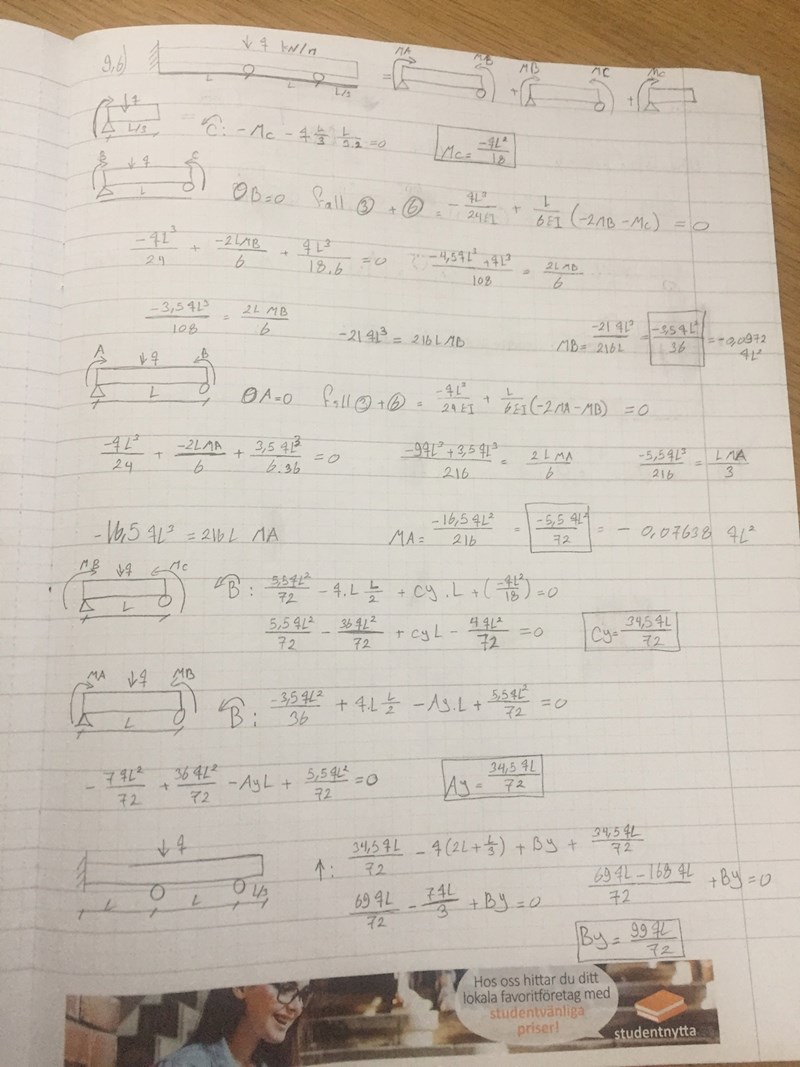 9,6)
↓q kN/m
L L L/3
= MA MB + MB MC + Mc
↓q L/3
C: -Mc - q L/3 L/3.2 = 0
Mc = -qL²/18
B ↓q C L
θB=0 fall ③ + ⑥ = -qL³/24EI + L/6EI (-2MB - Mc) = 0
-qL³/24 + -2LMB/6 + qL³/18.6 = 0
-4,5qL³+qL³/108 = 2LMB/6
-3,5qL³/108 = 2L MB/6
-21qL³ = 216LMB
MB = -21qL³/216L = -3,5qL²/36 = -0,0972 qL²
A ↓q B L
θA=0 fall ③ + ⑥ = -qL²/24EI + L/6EI (-2MA-MB) = 0
-qL²/24 + -2LMA/6 + 3,5qL³/6.36 = 0
-9qL³+3,5qL³/216 = 2LMA/6
-5,5qL²/216 = LMA/3
-16,5qL² = 216L MA
MA = -16,5qL²/216 = -5,5qL²/72 = -0,07638 qL²
MB ↓q Mc L
B: 5,5qL²/72 - q.L L/2 + Cy.L + (-qL²/18) = 0
5,5qL²/72 - 36qL²/72 + CyL - 4qL²/72 = 0
Cy = 34,5qL/72
MA ↓q MB L
B: -3,5qL²/36 + qL L/2 - Ay.L + 5,5qL²/72 = 0
-7qL²/72 + 36qL²/72 - AyL + 5,5qL²/72 = 0
Ay = 34,5qL/72
↓q L L L/3
↑: 34,5qL/72 - q(2L+L/3) + By + 34,5qL/72
69qL/72 - 7qL/3 + By = 0
69qL-168qL/72 + By = 0
By = 99qL/72
Hos oss hittar du ditt
lokala favoritföretag med
studentvänliga
priser!
studentnytta